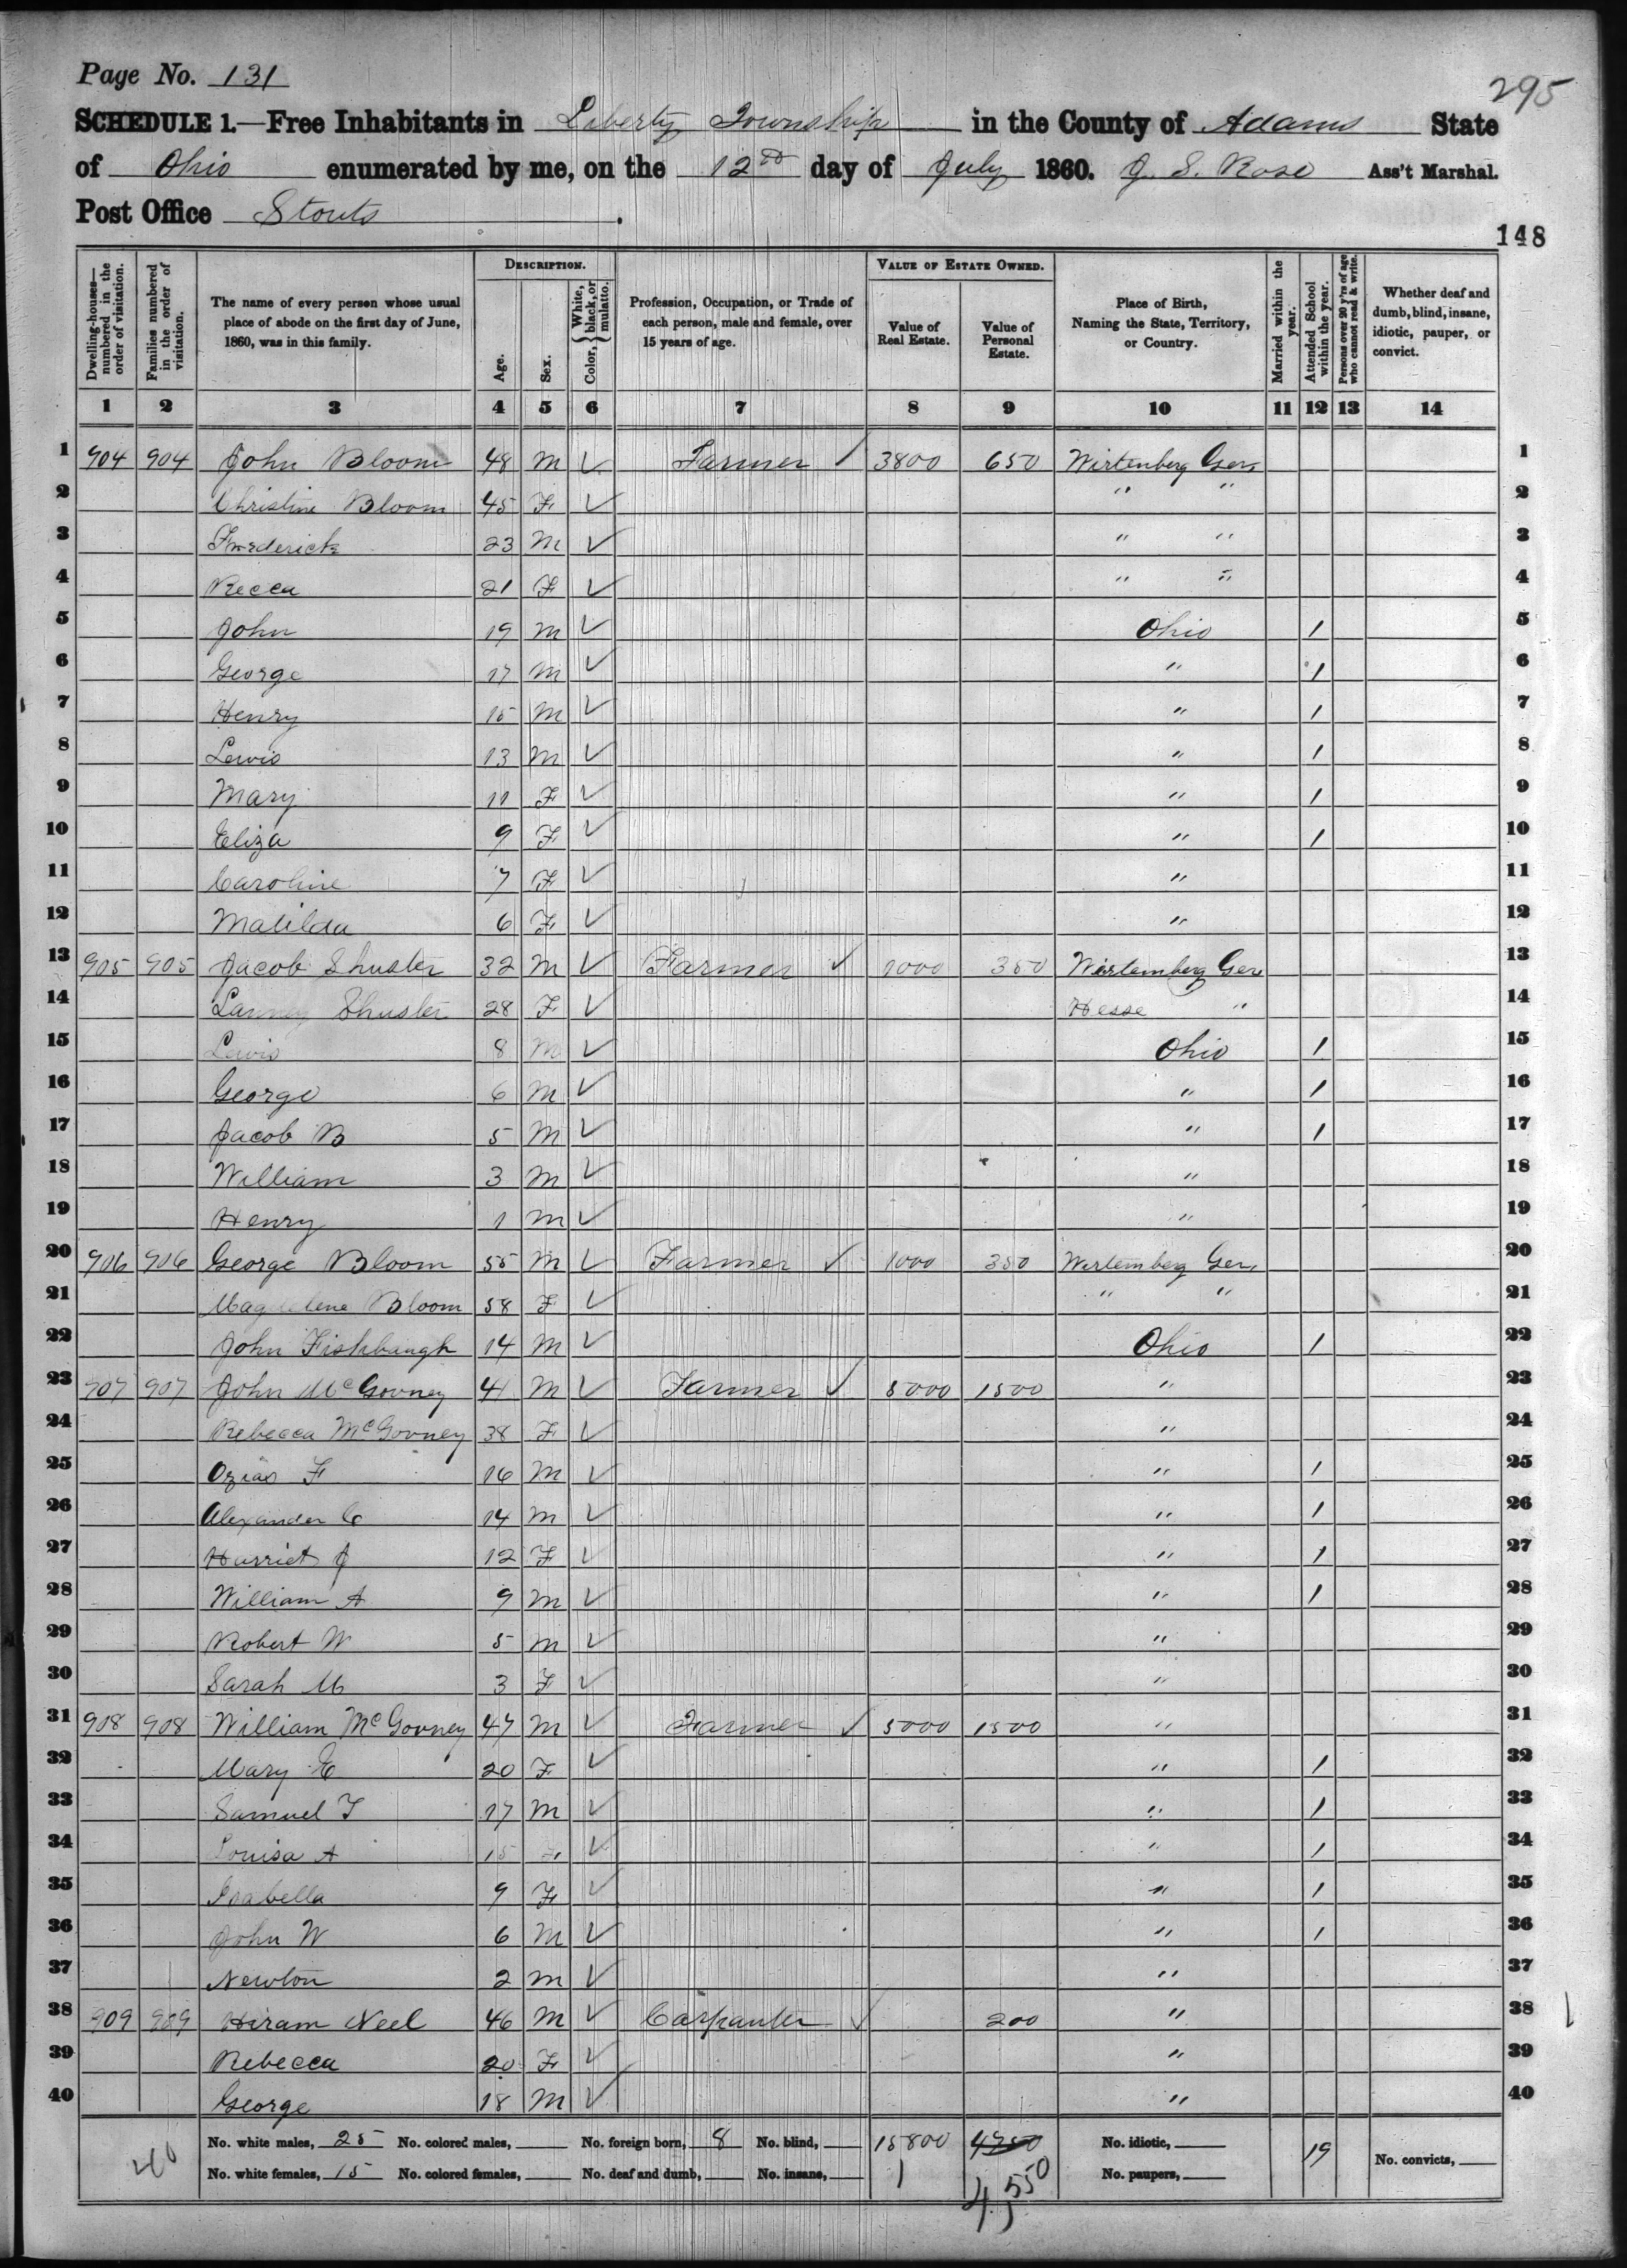 Page No. 131
295
SCHEDULE 1.—Free Inhabitants in Liberty Township in the County of Adams State
of Ohio enumerated by me, on the 12th day of July 1860. J. S. Rose Ass't Marshal.
Post Office Stouts.
148
Dwelling-houses—numbered in the order of visitation.
Families numbered in the order of visitation.
The name of every person whose usual place of abode on the first day of June, 1860, was in this family.
DESCRIPTION.
Age.
Sex.
Color, { White, black, or mulatto.
Profession, Occupation, or Trade of each person, male and female, over 15 years of age.
VALUE OF ESTATE OWNED.
Value of Real Estate.
Value of Personal Estate.
Place of Birth, Naming the State, Territory, or Country.
Married within the year.
Attended School within the year.
Persons over 20 y'rs of age who cannot read & write.
Whether deaf and dumb, blind, insane, idiotic, pauper, or convict.
1 2 3 4 5 6 7 8 9 10 11 12 13 14
1 904 904 John Bloom 48 M ✓ Farmer ✓ 3800 650 Wirtenberg Ger 1
2 Christine Bloom 45 F ✓ " " 2
3 Frederick 23 M ✓ " " 3
4 Recca 21 F ✓ " " 4
5 John 19 M ✓ Ohio / 5
6 George 17 M ✓ " / 6
7 Henry 15 M ✓ " / 7
8 Lewis 13 M ✓ " / 8
9 Mary 11 F ✓ " / 9
10 Eliza 9 F ✓ " / 10
11 Caroline 7 F ✓ " 11
12 Matilda 6 F ✓ " 12
13 905 905 Jacob Shuster 32 M ✓ Farmer ✓ 1000 350 Wirtemberg Ger 13
14 Shuster 28 F ✓ Hesse " 14
15 Lewis 8 M ✓ Ohio / 15
16 George 6 M ✓ " / 16
17 Jacob B 5 M ✓ " / 17
18 William 3 M ✓ " 18
19 Henry 1 M ✓ " 19
20 906 906 George Bloom 55 M ✓ Farmer ✓ 1000 350 Wirtemberg Ger 20
21 Magdelene Bloom 58 F ✓ " " 21
22 John Fishbaugh 14 M ✓ Ohio / 22
23 907 907 John McGovney 41 M ✓ Farmer ✓ 5000 1500 " 23
24 Rebecca McGovney 38 F ✓ " 24
25 Ozias F 16 M ✓ " / 25
26 Alexander C 14 M ✓ " / 26
27 Harriet J 12 F ✓ " / 27
28 William A 9 M ✓ " / 28
29 Robert W 5 M ✓ " 29
30 Sarah M 3 F ✓ " 30
31 908 908 William McGovney 47 M ✓ Farmer ✓ 5000 1500 " 31
32 Mary E 20 F ✓ " / 32
33 Samuel T 17 M ✓ " / 33
34 Louisa A 15 F ✓ " / 34
35 Isabella 9 F ✓ " / 35
36 John W 6 M ✓ " / 36
37 Newton 2 M ✓ " 37
38 909 909 Hiram Neel 46 M ✓ Carpanter ✓ 200 " 38
39 Rebecca 20 F ✓ " 39
40 George 18 M ✓ " 40
40 No. white males, 25 No. colored males, No. foreign born, 8 No. blind, 15800 4750 No. idiotic, 19 No. convicts,
No. white females, 15 No. colored females, No. deaf and dumb, No. insane, 4,550 No. paupers,